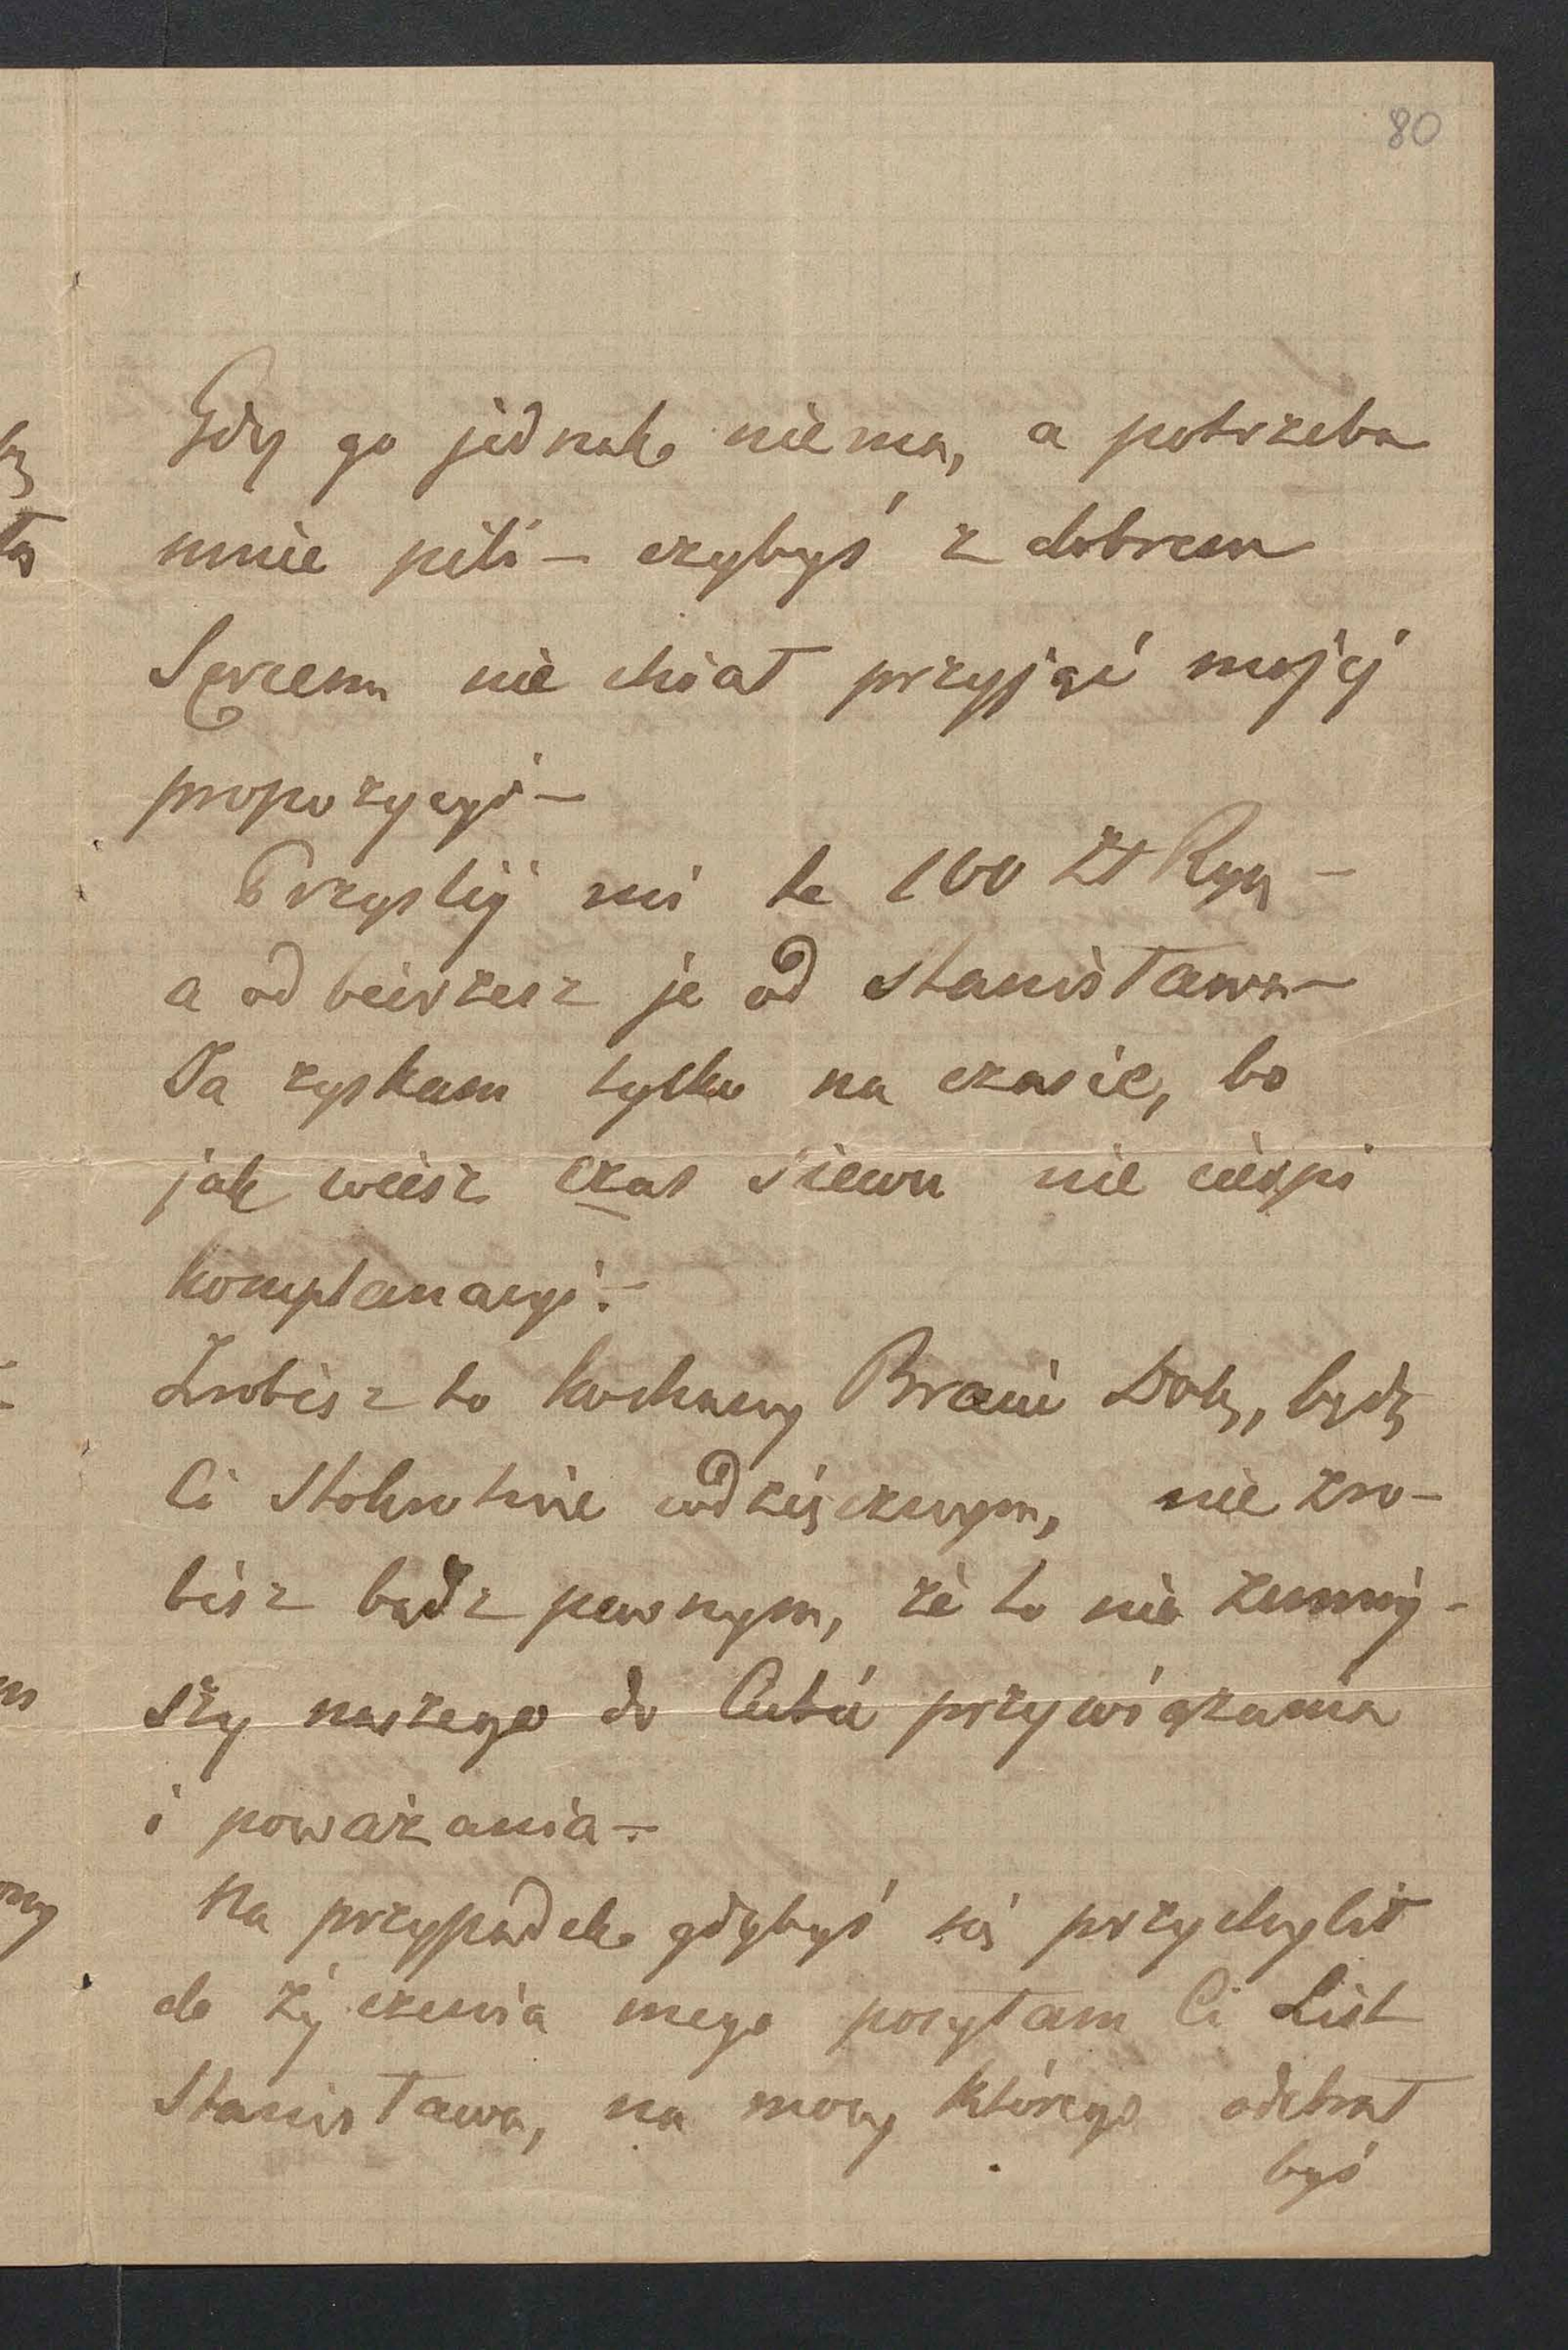 80
Gdy go jednak niema, a potrzeba
mnie pili – czybyś z dobrem
Sercem nie chciał przyjąć mojej
propozycyi –
Przyslij mi te 100 zł Ryń –
a odbierzesz je od Stanisława –
Ja zyskam tylko na czasie, bo
jak wiesz czas siewu nie cierpi
komplanacyi. –
Zrobisz to kochany Bracie Doly, będę
Ci stokrotnie wdzięcznym, nie zro-
bisz bądź pewnym, że to nie zmniej-
szy naszego do Ciebie przywiązania
i poważania –
Na przypadek gdybyś się przychylił
do życzenia mego posyłam Ci List
Stanisława, na mocy którego odebrał
byś